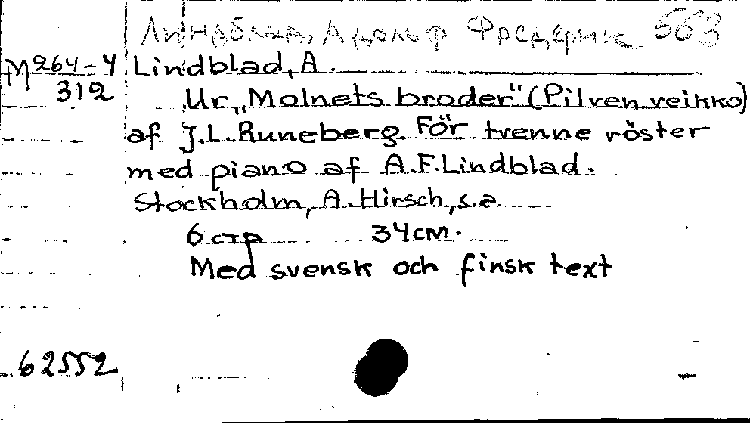 Линдблад, Адольф Фредерик 563
М 264-4 Lindblad, A.
312 Ur „Molnets broder" (Pilven veikko)
af J.L. Runeberg. För trenne röster
med piano af A.F. Lindblad.
Stockholm, A. Hirsch, s.a.
6 стр 34 см.
Med svensk och finsk text
62552